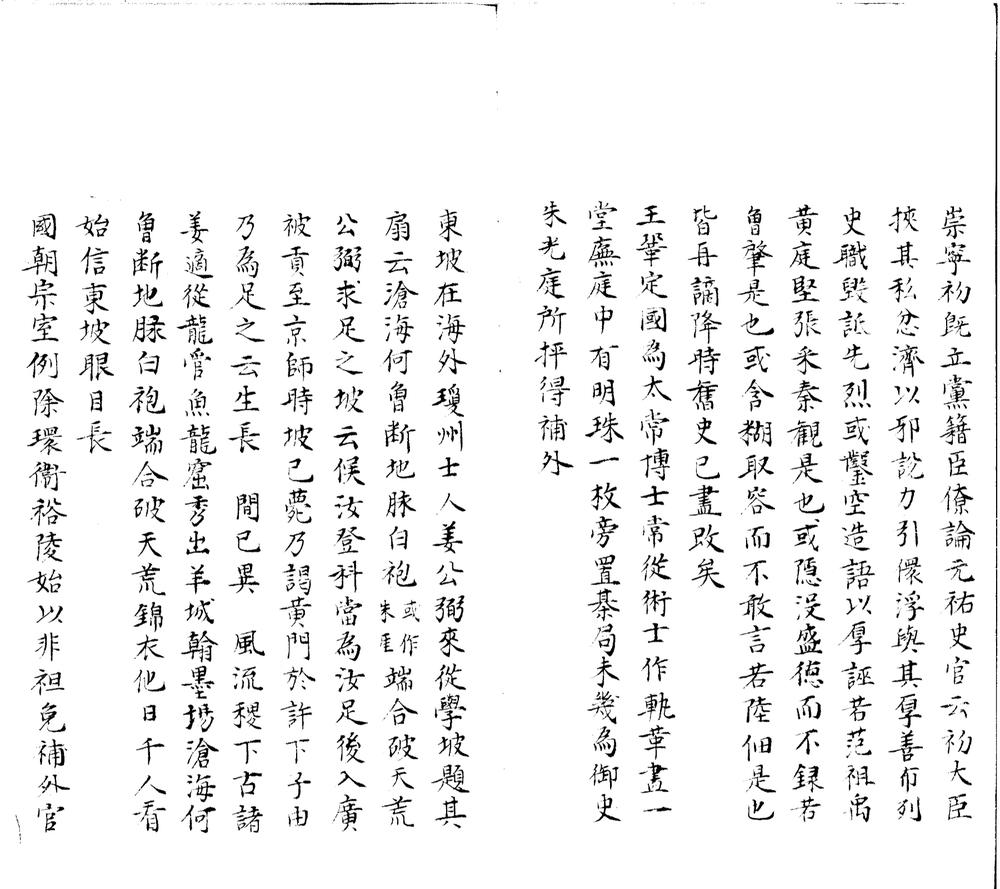 崇寧初既立黨籍臣僚論元祐史官云初大臣
挾其私忿濟以邪說力引儇浮與其厚善布列
史職毀詆先烈或鑿空造語以厚誣若范祖禹
黄庭堅張耒秦觀是也或隱没盛德而不錄若
曾肇是也或含糊取容而不敢言若陸佃是也
皆再謫降時舊史已盡改矣
王鞏定國為太常博士常從術士作軌革畫一
堂廡庭中有明珠一枚旁置棊局未幾為御史
朱光庭所抨得補外
東坡在海外瓊州士人姜公弼來從學坡題其
扇云滄海何曾斷地脉白袍或作朱崖端合破天荒
公弼求足之坡云候汝登科當為汝足後入廣
被貢至京師時坡已薨乃謁黄門於許下子由
乃為足之云生長 間已異 風流稷下古諸
姜適從龍管魚龍窟秀出羊城翰墨場滄海何
曾斷地脉白袍端合破天荒錦衣他日千人看
始信東坡眼目長
國朝宗室例除環衞裕陵始以非袒免補外官